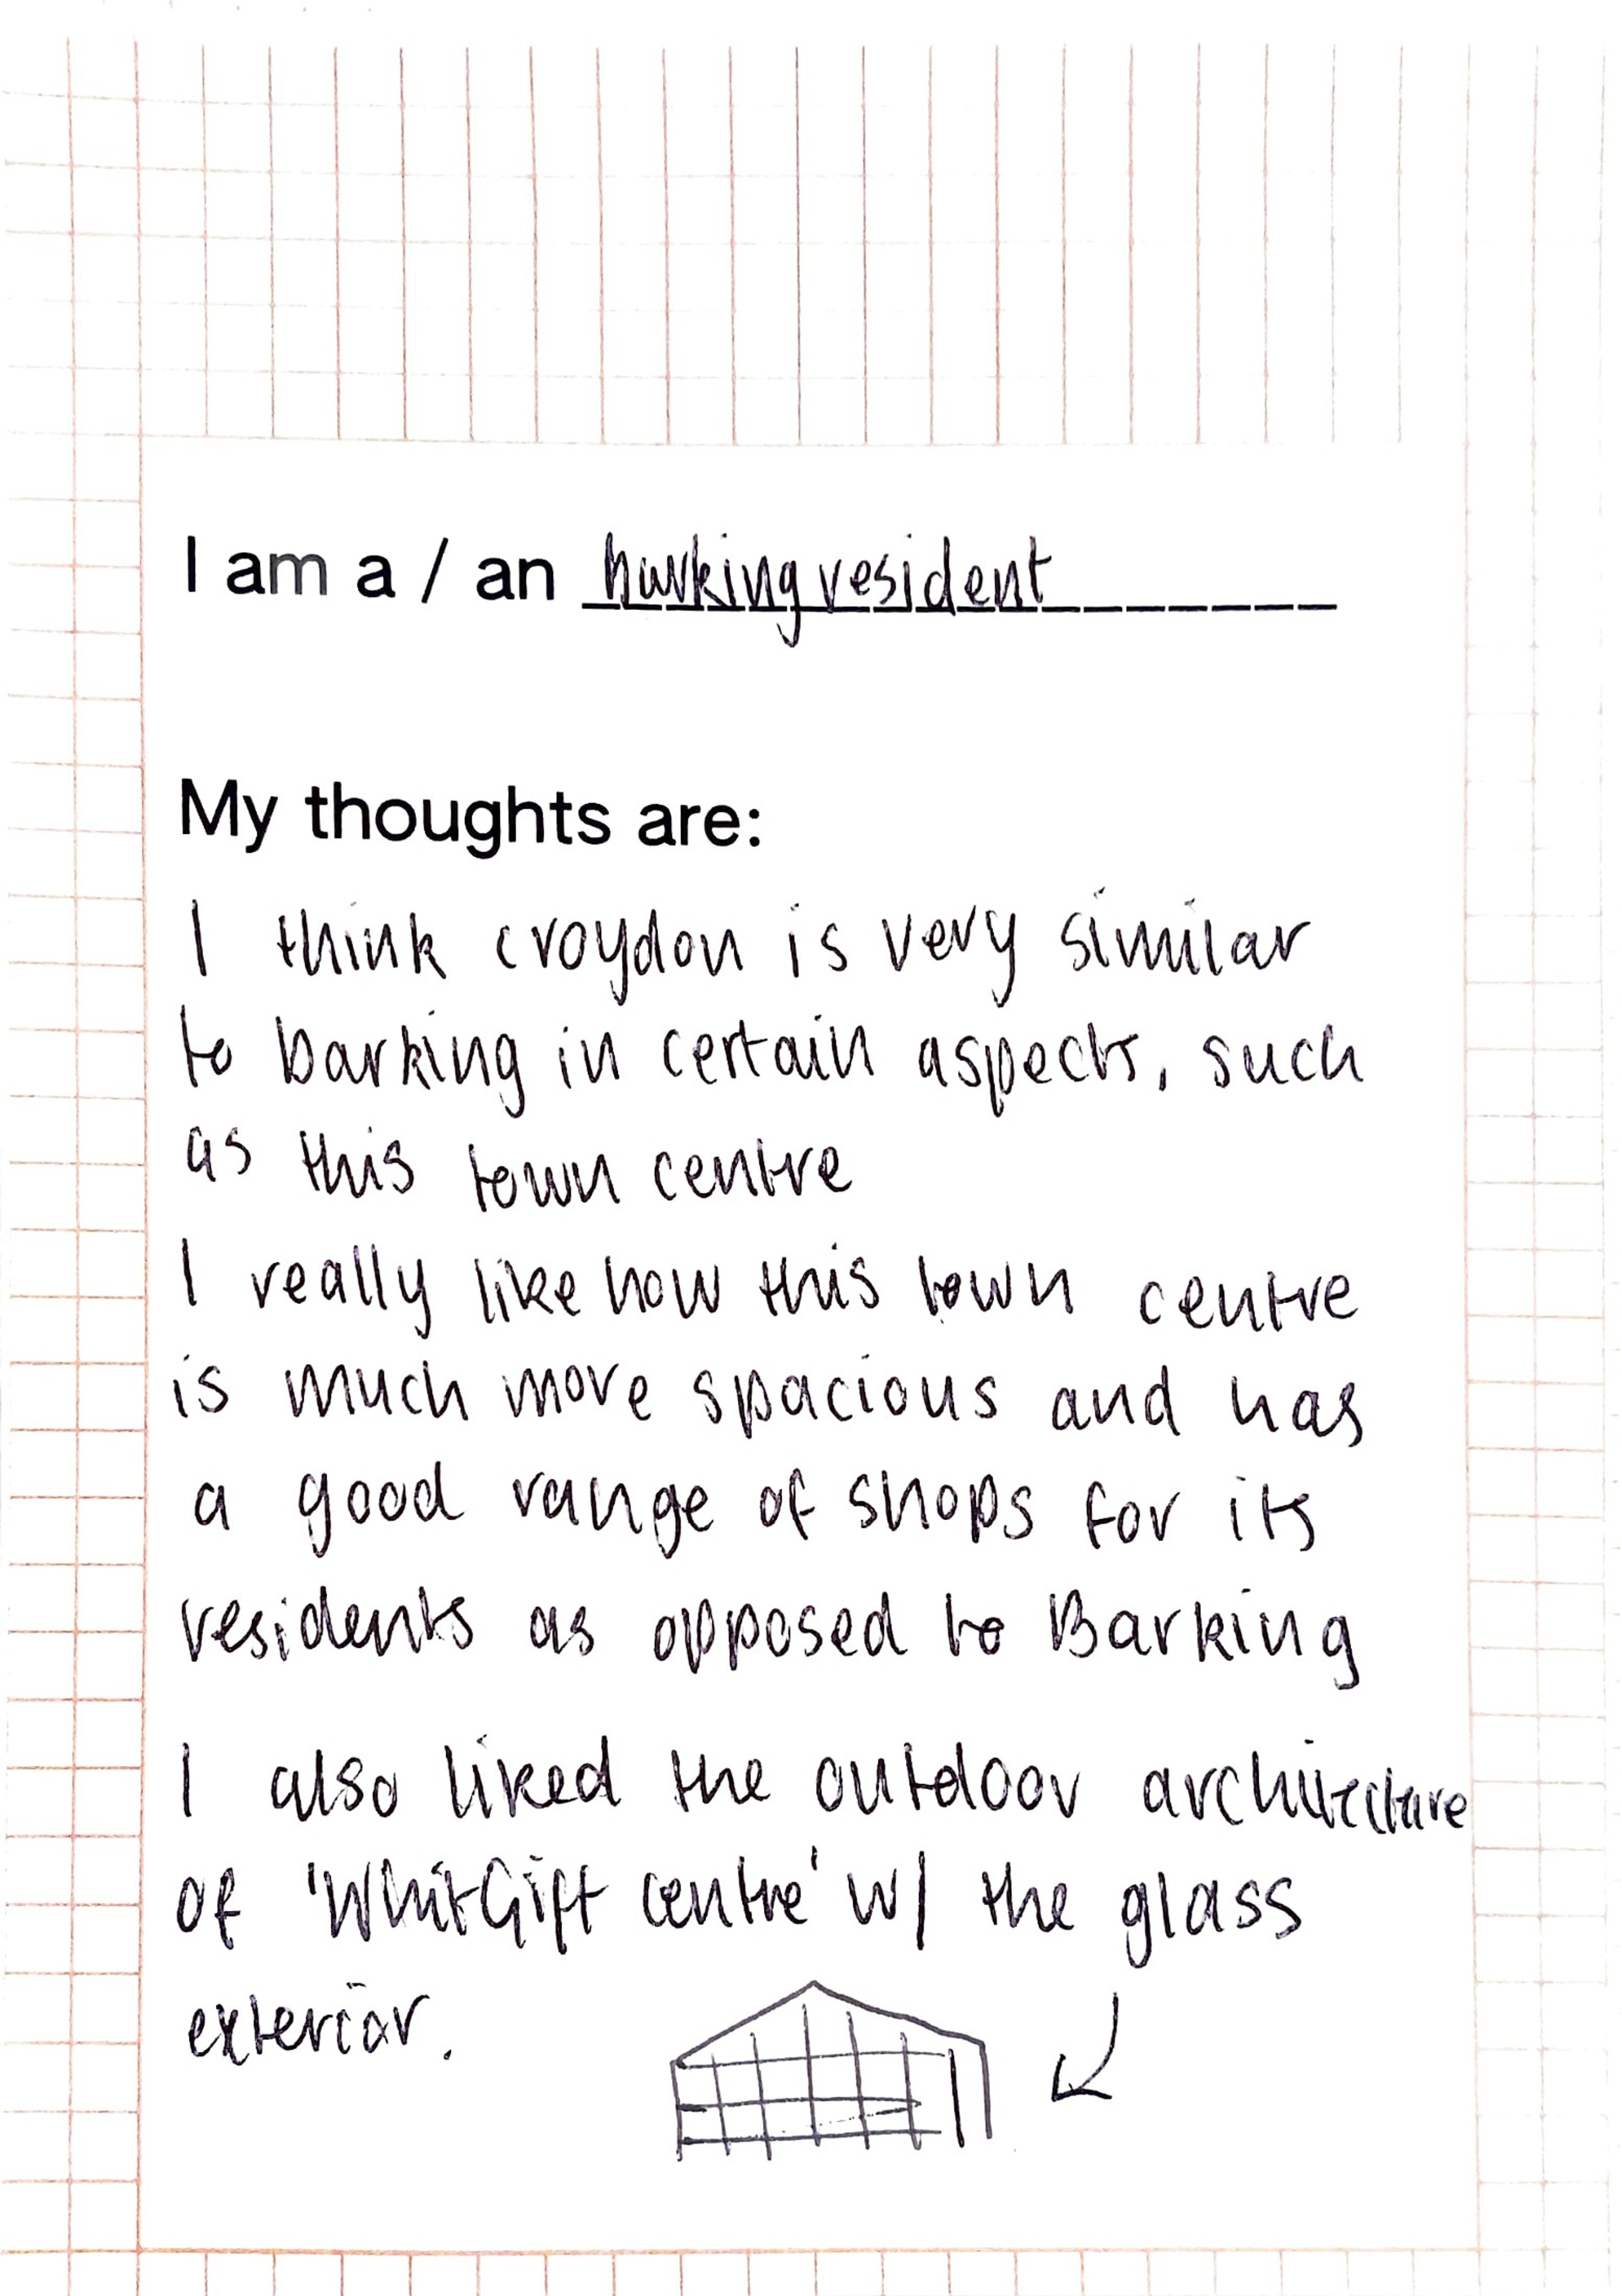 I am a / an barking resident
My thoughts are:
I think croydon is very similar
to barking in certain aspects, such
as this town centre
I really like how this town centre
is much more spacious and has
a good range of shops for its
residents as opposed to Barking
I also liked the outdoor architecture
of 'WhitGift centre' w/ the glass
exterior.